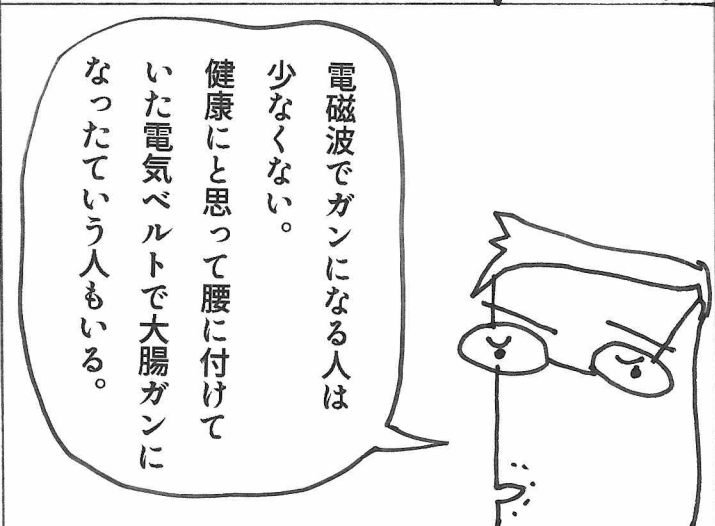 電磁波でガンになる人は
少なくない。
健康にと思って腰に付けて
いた電気ベルトで大腸ガンに
なったていう人もいる。